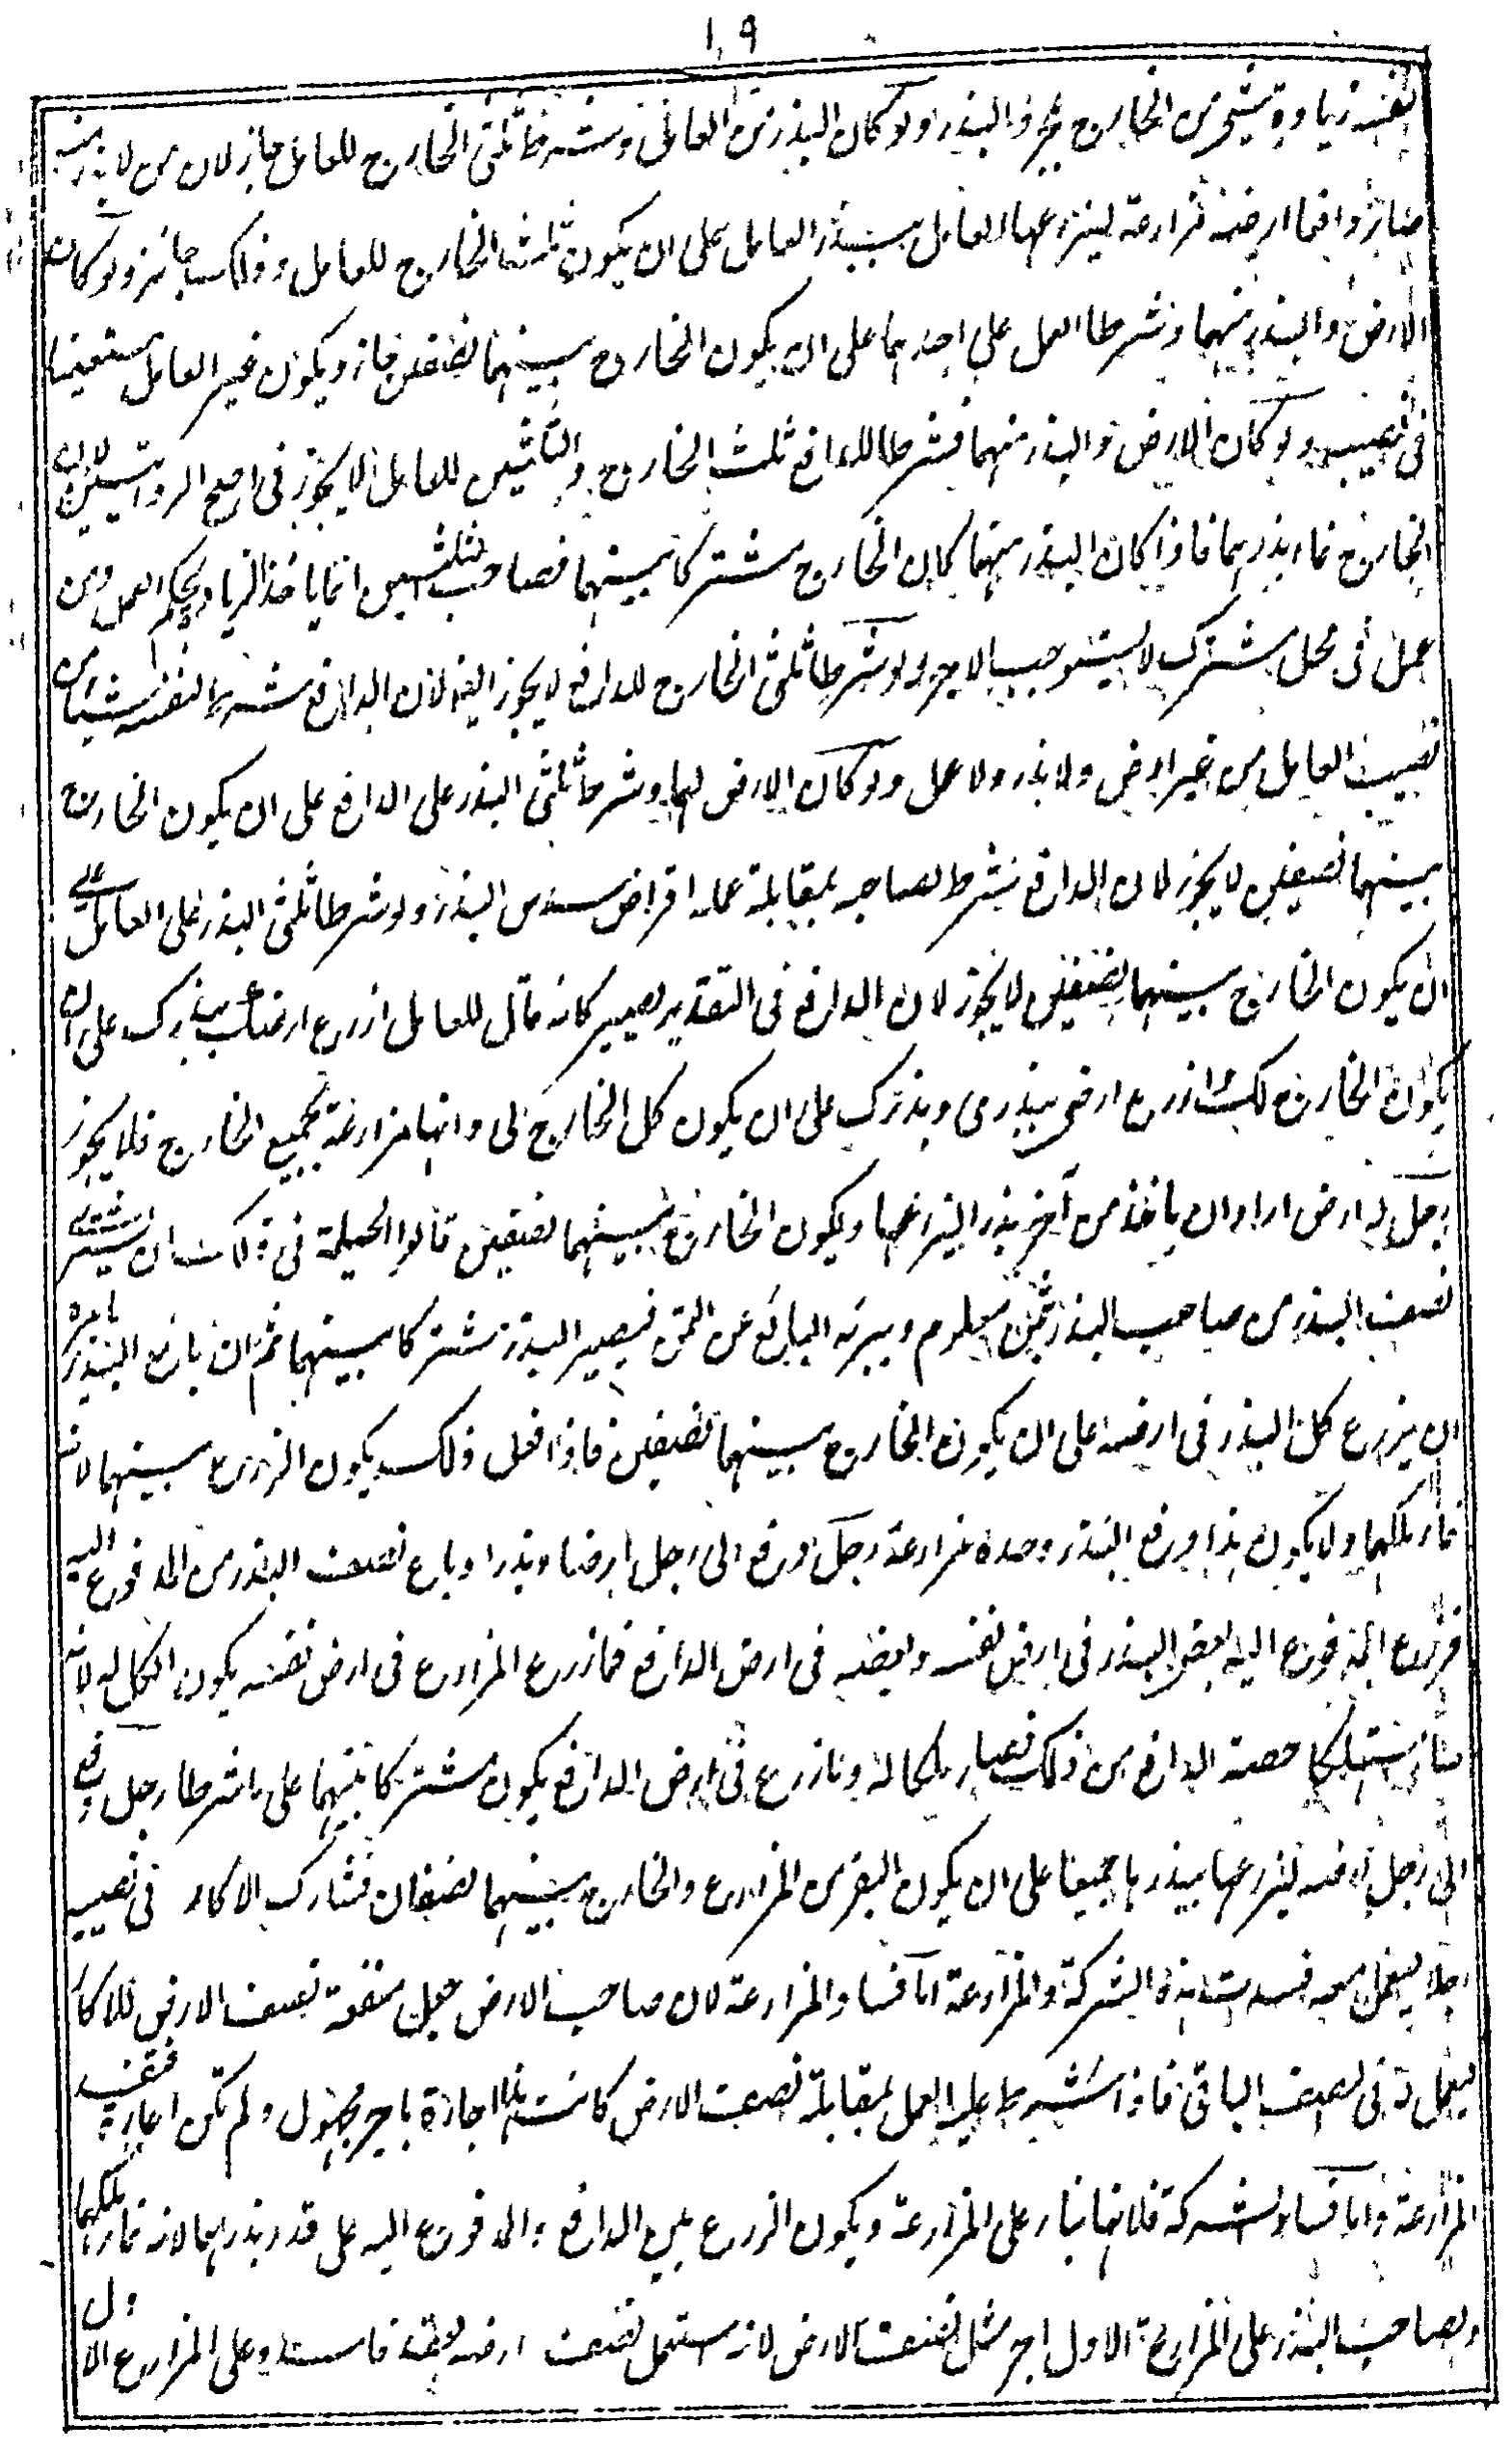 ١٠٩
لنفسه زيادة شيء من الخارج بمجرد البذر ولو كان البذر من العامل وشرطا ثلثي الخارج للعامل جاز لان من لا بذر منه
صار دافعا ارضه مزارعة ليزرعها العامل ببذر العامل على ان يكون ثلثا الخارج للعامل وذلك جائز ولو كان
الارض والبذر منهما وشرطا العمل على احدهما على ان يكون الخارج بينهما نصفين جاز ويكون غير العامل مستعينا
في نصيبه ولو كان الارض والبذر منهما فشرطا للدافع ثلث الخارج والثلثين للعامل لا يجوز في اصح الروايتين لان
الخارج نماء بذرهما فاذا كان البذر منهما كان الخارج مشتركا بينهما فصاحب الثلثين انما ياخذ الزيادة بحكم العمل ومن
عمل في محل مشترك لا يستوجب الاجر ولو شرطا ثلثي الخارج للدافع لا يجوز ايضا لان الدافع شرط لنفسه شيئا من
نصيب العامل من غير ارض ولا بذر ولا عمل ولو كان الارض لهما وشرطا ثلثي البذر على الدافع على ان يكون الخارج
بينهما نصفين لا يجوز لان الدافع شرط لصاحبه بمقابلة عمله اقراض سدس البذر ولو شرطا ثلثي البذر على العامل على
ان يكون الخارج بينهما نصفين لا يجوز لان الدافع في التقدير يصير كانه قال للعامل ازرع ارضك ببذرك على ان
يكون الخارج لك وازرع ارضي ببذري وبذرك على ان يكون كل الخارج لي وانها مزارعة بجميع الخارج فلا يجوز
رجل له ارض اراد ان ياخذ من آخر بذرا ليزرعها ويكون الخارج بينهما نصفين قالوا الحيلة في ذلك ان يشتري
نصف البذر من صاحب البذر بثمن معلوم ويبرئه البائع عن الثمن فيصير البذر مشتركا بينهما ثم ان بائع البذر يامره
ان يزرع كل البذر في ارضه على ان يكون الخارج بينهما نصفين فاذا فعل ذلك يكون الزرع بينهما لانه
نماء ملكهما ولا يكون هذا دفع البذر وحده مزارعة رجل دفع الى رجل ارضا وبذرا وباع نصف البذر من المدفوع اليه
فزرع المدفوع اليه بعض البذر في ارض نفسه وبعضه في ارض الدافع فما زرع المزارع في ارض نفسه يكون الكل له لانه
صار مستهلكا حصة الدافع من ذلك فصار ملكا له وما زرع في ارض الدافع يكون مشتركا بينهما على ما شرطا رجل دفع
الى رجل ارضه ليزرعها ببذرهما جميعا على ان يكون البقر من المزارع والخارج بينهما نصفان فشارك الاكار في نصيبه
رجلا ليعمل معه فسدت هذه الشركة والمزارعة اما فساد المزارعة لان صاحب الارض جعل منفعة نصف الارض للاكار
ليعمل له في النصف الباقي فاذا شرط عليه العمل بمقابلة نصف الارض كانت هذا اجارة باجر مجهول ولم تكن اعارة فتفسد
المزارعة واما فساد الشركة فلانها بناء على المزارعة ويكون الزرع بين الدافع والمدفوع اليه على قدر بذرهما لانه نماء ملكهما
ولصاحب البذر على المزارع الاول اجر مثل نصف الارض لانه استعمل نصف ارضه بعقد فاسد وعلى المزارع الاول